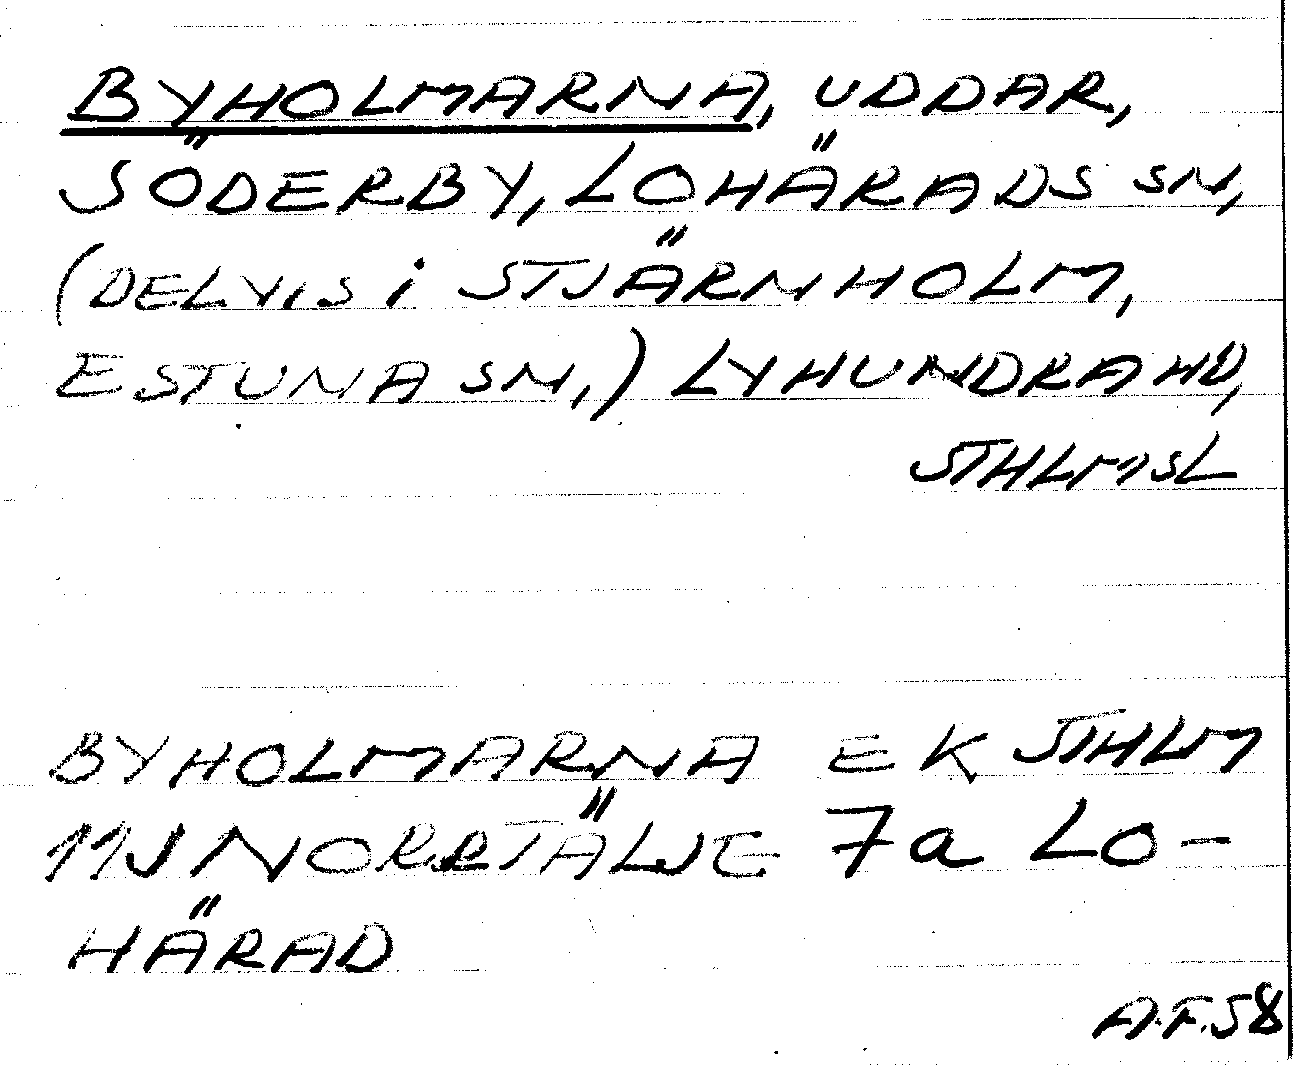 BYHOLMARNA, UDDAR,
SÖDERBY, LOHÄRADS SN,
(DELVIS i STJÄRNHOLM,
ESTUNA SN,) LYHUNDRA HD,
STHLMSL
BYHOLMARNA EK STHLM
11J NORRTÄLJE 7a LO-
HÄRAD
A.F.58